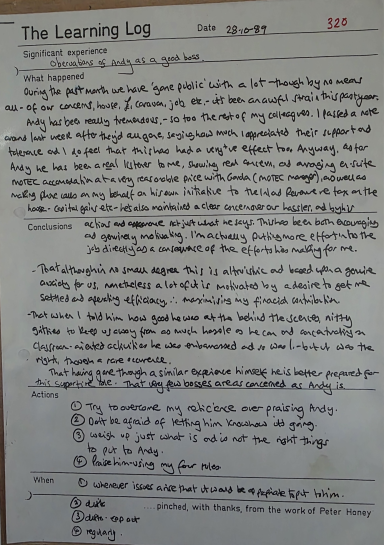 The Learning Log Date 28-10-89 320
Significant experience
Observations of Andy as a good boss.
What happened
During the past month we have 'gone public' with a lot - though by no means
all - of our concerns, house, caravan, job etc, - it's been an awful strain this past year.
Andy has been really tremendous, - so too the rest of my colleagues. I passed a note
around last week after they'd all gone, saying how much I appreciated their support and
tolerance and I do feel that this has had a +ve effect too. Anyway, as for
Andy he has been a real listener to me, showing real concern, and arranging en-suite
MOTEC accommodation at a very reasonable price with (MOTEC manager), as well as
making phone calls on my behalf on his own initiative to the Inland Revenue re tax on the
house - gains etc - he's also maintained a clear concern over our hassles, and by his
Conclusions actions and not just what he says. This has been both encouraging
and genuinely motivating. I'm actually putting more effort into the
job directly as a consequence of the efforts he's making for me.
- That although in no small degree this is altruistic and based upon a genuine
anxiety for us, nonetheless a lot of it is motivated by a desire to get me
settled and operating efficiency, ∴ maximising my financial contribution.
- That when I told him how good he was at the behind the scenes, nitty
gritties to keep us away from as much hassle as he can and concentrating on
classroom-related activities he was embarrassed and so was I, - but it was the
right, though a rare occurrence.
That having gone through a similar experience himself he is better prepared for
this supportive role. - That very few bosses are as concerned as Andy is.
Actions
① Try to overcome my reticence over praising Andy.
② Don't be afraid of letting him know how it's going.
③ Weigh up just what is and is not the right things
to put to Andy.
④ Praise him - using my four rules.
When ① whenever issues arise that it would be appropriate to put to him.
② ditto ....pinched, with thanks, from the work of Peter Honey
③ ditto -
④ regularly.